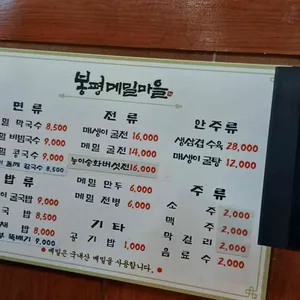 봉평메밀마을
면류
막국수 8,500
비빔국수 9,000
콩국수 9,000
칼국수 8,500
밥류
굴국밥 9,000
국밥 8,500
밥 8,500
뚝배기 9,000
전류
매생이 굴전 16,000
메밀 굴전 14,000
능이송화버섯전 16,000
메밀 만두 6,000
메밀 전병 6,000
기타
공기밥 1,000
안주류
생삼겹 수육 28,000
매생이 굴탕 12,000
주류
소주 2,000
맥주 2,000
막걸리 2,000
음료수 2,000
메밀은 국내산 메밀을 사용합니다.